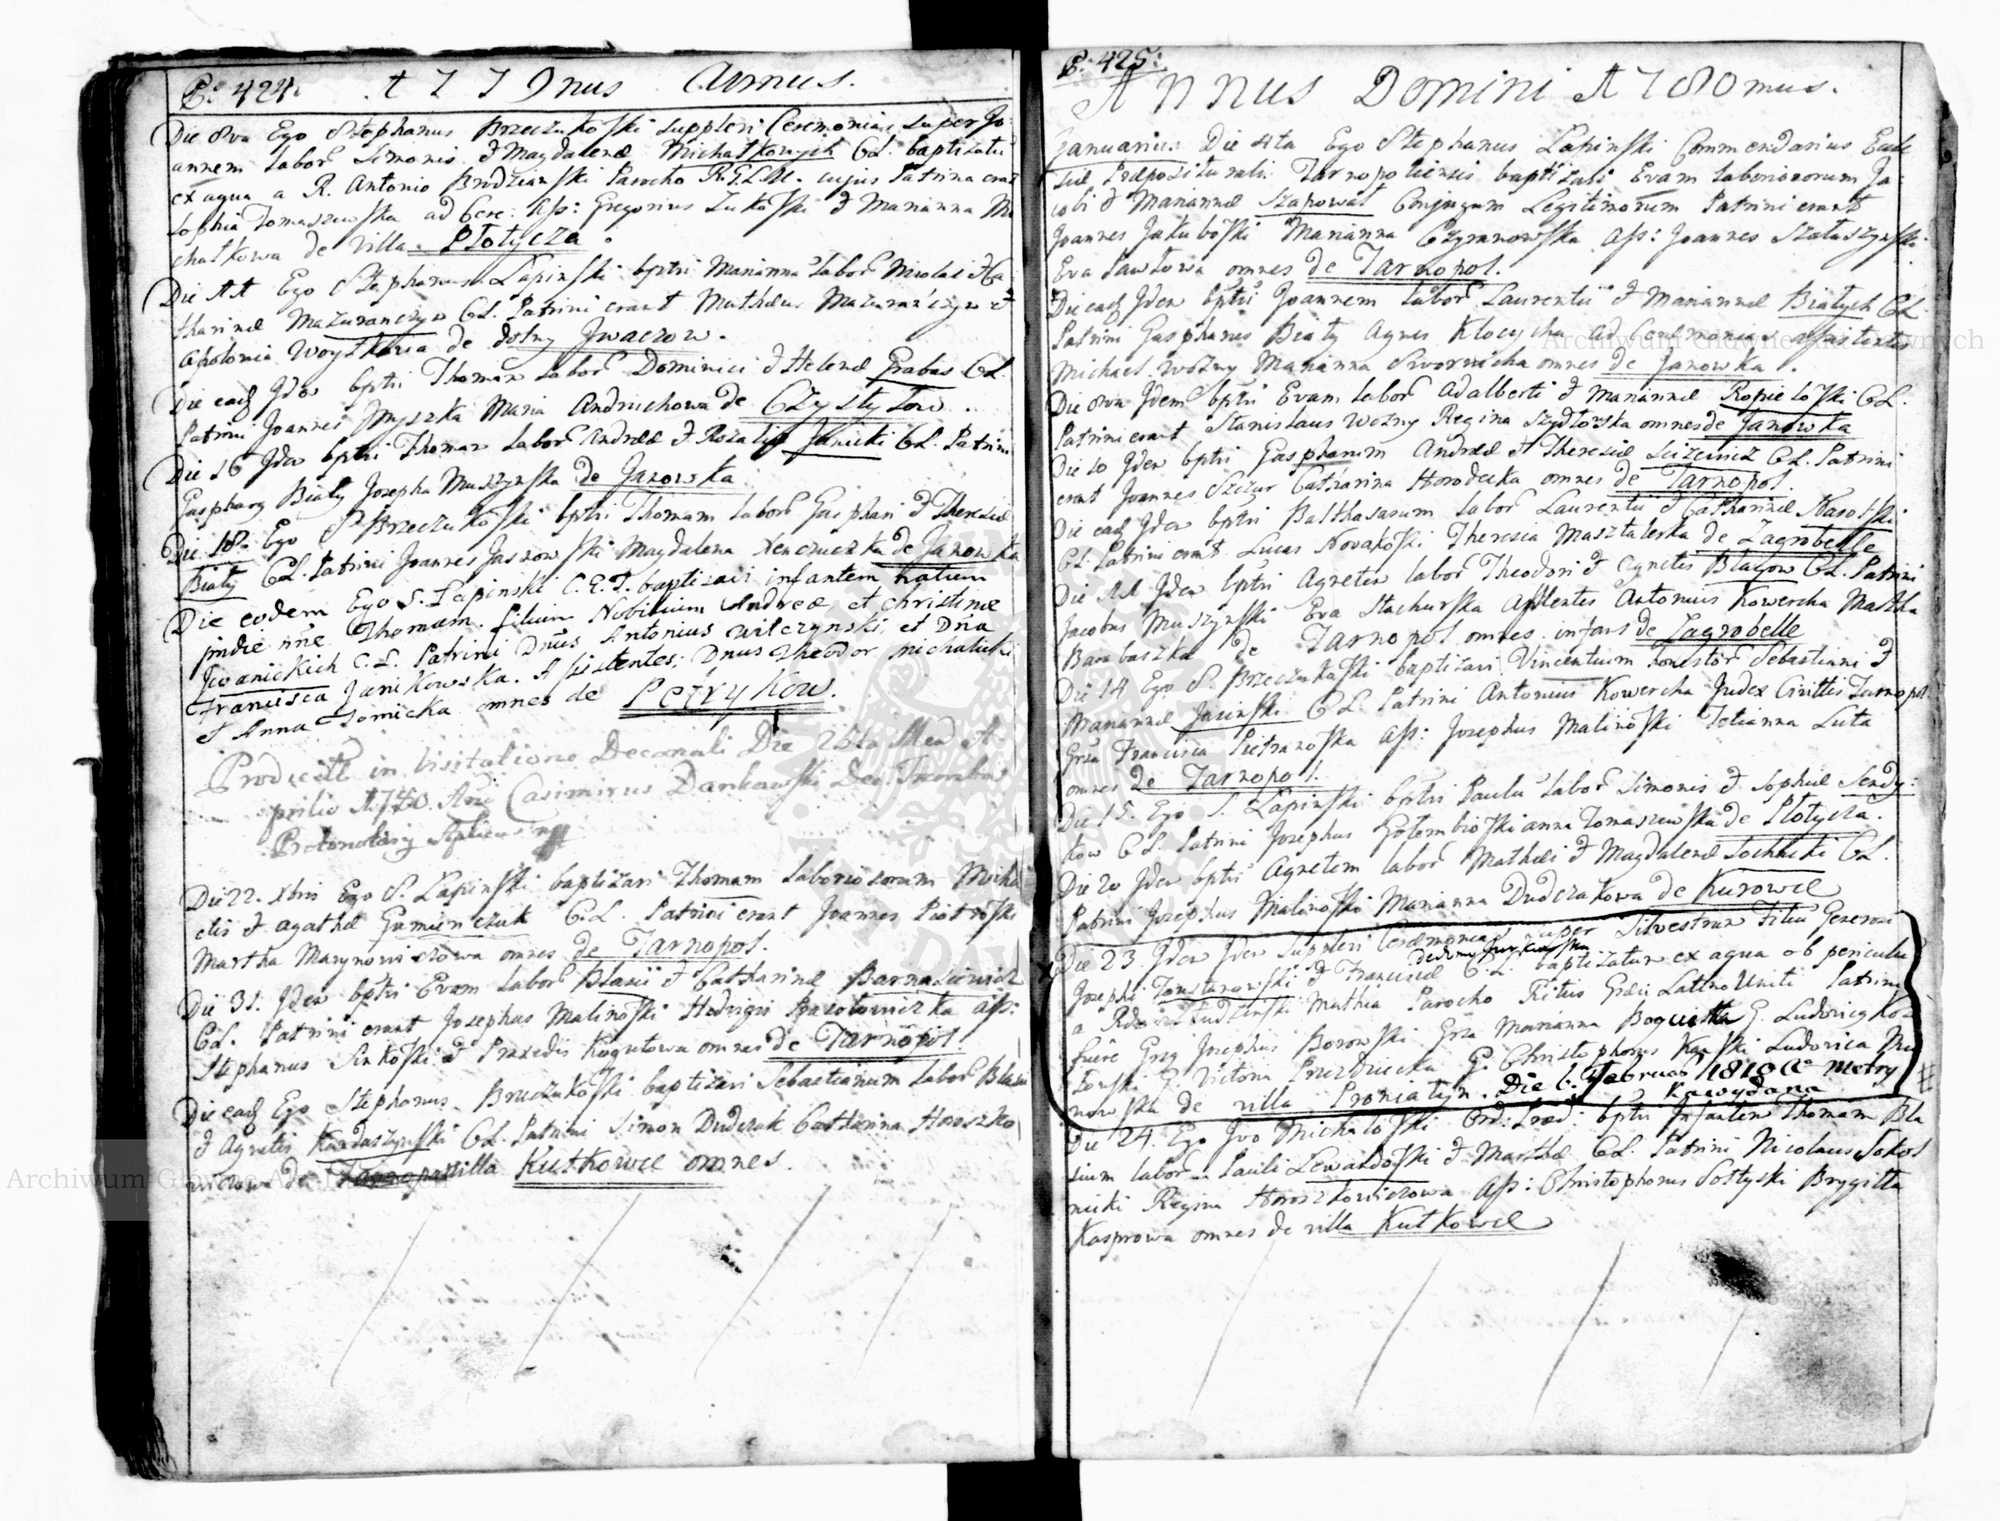 P: 424. 1779nus Annus.
Die 8va Ego Stephanus Brzeżukoski supplevi Ceremonias super Jo-
annem labor Simonis & Magdalenæ Michałkowych C.L. baptizatū
ex aqua a R. Antonio Brudzianski Parocho R.G.L.U. cujus Patrina erat
Sophia Tomaszewska ad Cere: Ass: Gregorius Zukoski & Marianna Mi
chałkowa de Villa Płotycza.
Die 11 Ego Stephanus Łapinski bptvi Marianna labor Nicolai & Ca
tharinæ Mazuranczyn C.L. Patrini erant Mathæus Mazuranczyn et
Apolonia Woytkowa de dolny Jwaczow.
Die eadē Jdem bptvi Thomam labor Dominici & Helenæ Grabas C.L.
Patrini Joannes Myszka Maria Andruchowa de Czystyłow.
Die 16 Jdem bptvi Thomam labor Andreæ & Rozaliæ Janicki C.L. Patrini
Gasphary Biały Josepha Muszynska de Janowka
Die 18 Ego S. Brzeżukoski bptvi Thomam labor Gasphari & Theresiæ
Biały C.L. Patrini Joannes Jasnowski Magdalena de Janowka
Die eodem Ego S. Łapinski C.E.T. baptizavi infantem natum
pridie nñe Thomam. filium Nobilium Andreæ, et Christinæ
Jwanickich C.L. Patrini Dnus Antonius Wilczynski, et Dña
Francisca Janikowska. Assistentes; Dnus Theodor Michalicki
et Anna Tomicka omnes de Petrykow.
Producitū in Visitatione Decanali Die 25ta Men A-
prilis 1780. Casimirus Dankowski Dec. Trembov
Protonotary Aplicus mp
Die 22. Xbris Ego S. Łapinski baptizavi Thomam laboriosorum Micha
elis & Agathæ Gumienczuk C.L. Patrini erant Joannes Piotroski
Martha Marynowiczowa omnes de Tarnopol.
Die 31. Jdem bptvi Evam labor Blasii & Catharinæ Barnasiewicz
C.L. Patrini erant Josephus Malinoski Hedvigis Ass:
Stephanus Sinkoski & Praxedis Kogutowa omnes de Tarnopol
Die eadē Ego Stephanus Brzeżukoski baptizavi Sebastianum labor Blasii
& Agnetis Kardaszynski C.L. Patrini Simon Dudczak Catharina Horoszko
wiczowa de villa Kutkowce omnes.
P: 425:
Annus Domini 1780mus.
Januarius Die 4ta Ego Stephanus Łapinski Commendarius Eccle
siæ Præpositurali Tarnopoliensis baptizavi Evam laboriosorum Ja-
cobi & Mariannæ Szapował Conjugum Legitimorum Patrini erant
Joannes Jakuboski Marianna Czyranowska Ass: Joannes Szałaszynski
Eva Pawłowa omnes de Tarnopol.
Die eadē Jdem bptvi Joannem labor Laurentii & Mariannæ Białych C.L.
Patrini Gasphanus Biały Agnes Klocycha ad Ceremonias assistentes
Michael Wozny Marianna Swornicha omnes de Janowka.
Die 8va Jdem bptvi Evam labor Adalberti & Mariannæ Kopieloski C.L.
Patrini erant Stanislaus Wozny Regina Szydłowska omnes de Janowka
Die 10 Jdem bptvi Gasparum Andreæ et Theresiæ C.L. Patrini
erant Joannes Szczur Catharina Horodecka omnes de Tarnopol.
Die eadē Jdem bptvi Balthasarum labor Laurentii & Catharinæ Naroski
C.L. Patrini erant Lucas Novakoski Theresia Masztalerka de Zagrobelle
Die 11 Jdem bptvi Agnetem labor Theodori & Agnetis Blazow C.L. Patrini
Jacobus Muszynski Eva Stachurska Asstentes Antonius Kowercha Martha
Barabaszka de Tarnopol omnes. infans de Zagrobelle
Die 14 Ego S. Brzeżukoski baptizavi Vincentium honestor Sebastiani &
Mariannæ Jasinski C.L. Patrini Antonius Kowercha Judex Civittis Tarnopol
Grsa Francisca Pietranoska Ass: Josephus Malinoski Tetianna Luta
omnes de Tarnopol.
Die 15. Ego S. Łapinski bptvi Paulū labor Simonis & Sophiæ Sendy-
kow C.L. Patrini Josephus Gołembioski Anna Tomaszewska de Płotycza.
Die 20 Jdem bptvi Agnetem labor Mathæi & Magdalenæ Sochacki C.L.
Patrini Josephus Malinoski Marianna Dudczakowa de Kurowce
Die 23. Jdem Jdem supplevi Ceremonias super Silvestrum Filiū Generosi
Josephi Tomstanowski & Franciscæ C.L. baptizatum ex aqua ob periculū
a Rdo Mathia Parocho Ritus Græci Latino Uniti Patrini
fuere Grsg Josephus Borowski Grsa Marianna Boguska G. Ludovicg Koz
łowski G. Victoria Prusznicka G. Christophorus Kanski Ludovica Ma
nowska de villa Proniatyn. Die 6. Februar 1810 Aº Metry
Ka wydana
Die 24. Ego Jvo Michaloski Ord: Præd: bptvi Infantem Thomam Bla
sium labor Pauli Lewandoski & Marthæ C.L. Patrini Nicolaus Sokol
nicki Regina Horoszkowiczowa Ass: Christophorus Sołtyski Brygitta
Kasprowa omnes de villa Kutkowce
Archiwum Główne Akt Dawnych